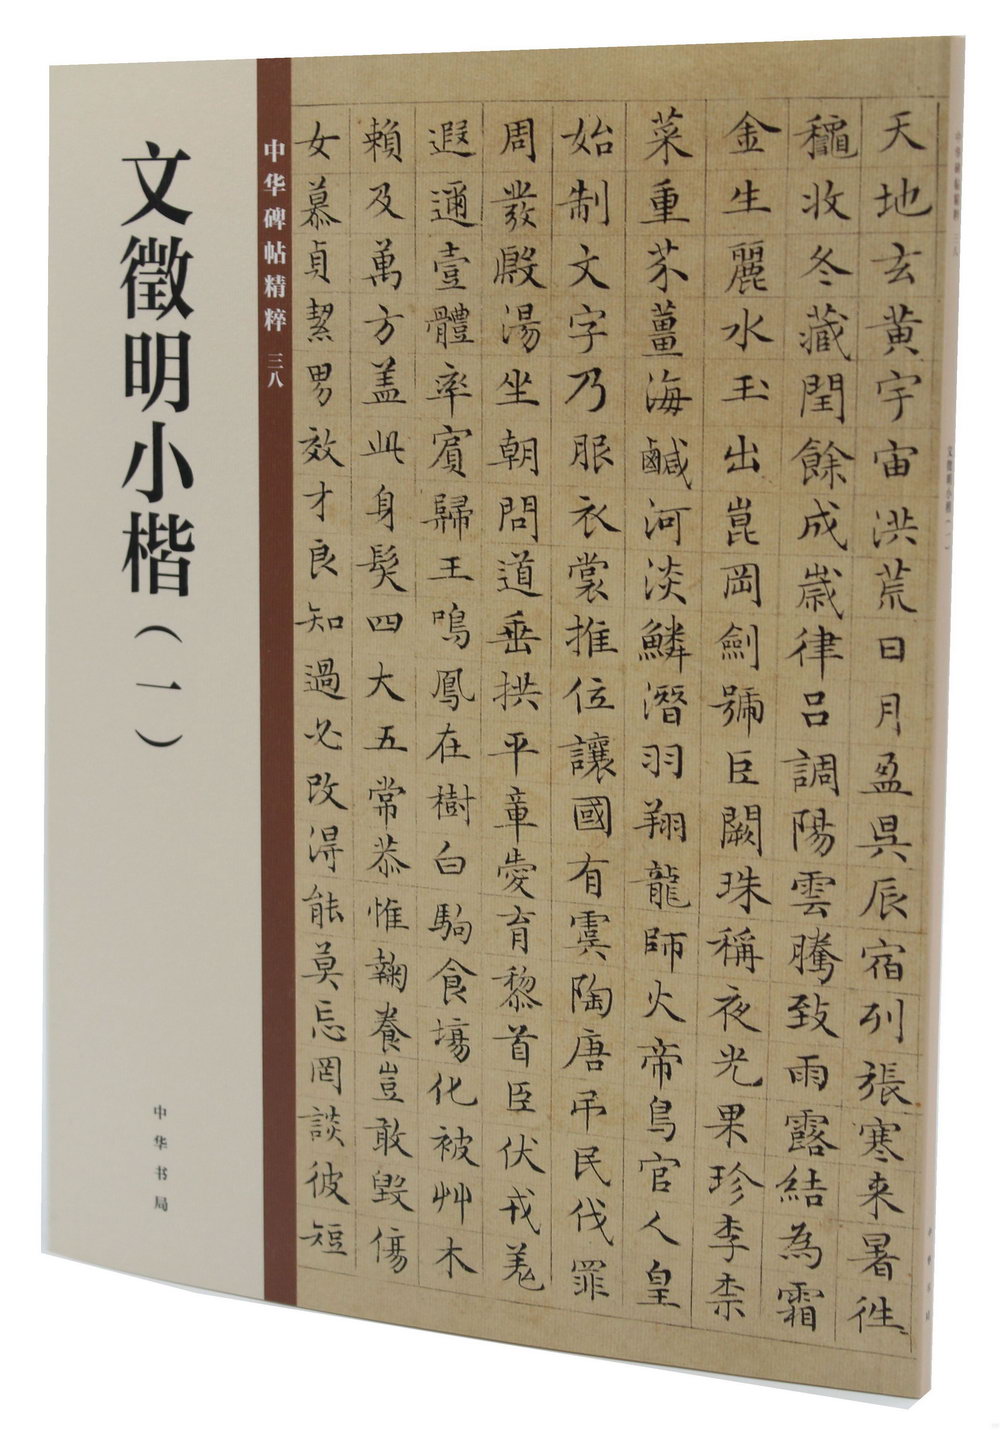 文徵明小楷（一）
中华书局
中华碑帖精粹 三八
天地玄黃宇宙洪荒日月盈昃辰宿列張寒来暑徃
穐收冬藏閏餘成歲律吕調陽雲騰致雨露結為霜
金生麗水玉出崑岡劍號巨闕珠稱夜光果珍李柰
菜重芥薑海鹹河淡鱗潛羽翔龍師火帝鳥官人皇
始制文字乃服衣裳推位讓國有虞陶唐弔民伐罪
周發殷湯坐朝問道垂拱平章愛育黎首臣伏戎羌
遐邇壹體率賓歸王鳴鳳在樹白駒食場化被艸木
賴及萬方盖此身髮四大五常恭惟鞠養豈敢毀傷
女慕貞絜男效才良知過必改得能莫忘罔談彼短
中华碑帖精粹 三八
文徵明小楷（一）
中华书局